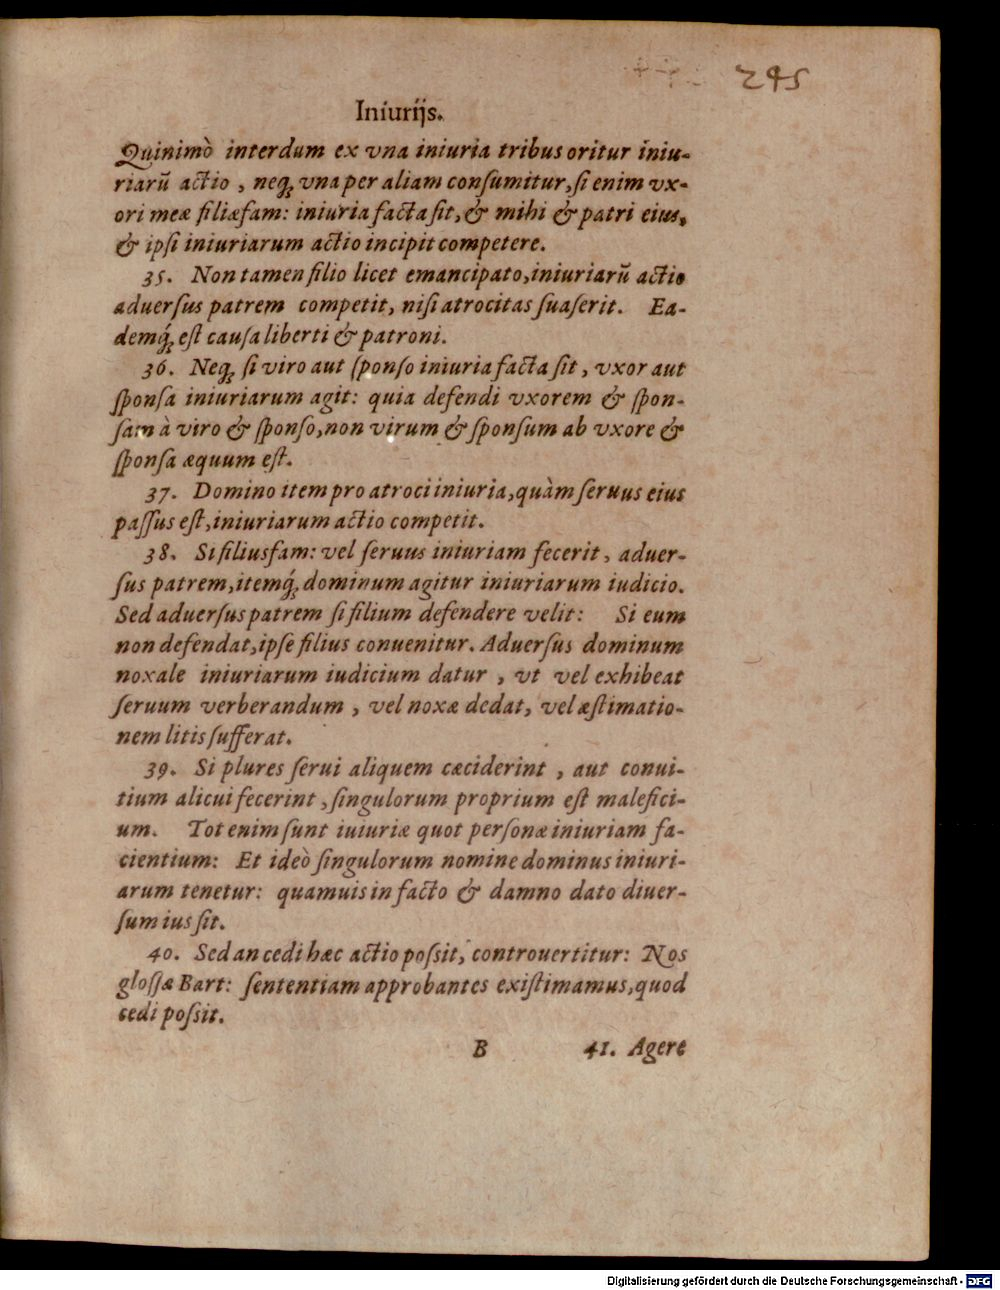 245
Iniurijs.
Quinimò interdum ex vna iniuria tribus oritur iniu-
riarũ actio, neq; vna per aliam consumitur, si enim vx-
ori meæ filiæfam: iniuria facta sit, & mihi & patri eius,
& ipsi iniuriarum actio incipit competere.
35. Non tamen filio licet emancipato, iniuriarũ actio
aduersus patrem competit, nisi atrocitas suaserit. Ea-
demq́; est causa liberti & patroni.
36. Neq; si viro aut sponso iniuria facta sit, vxor aut
sponsa iniuriarum agit: quia defendi vxorem & spon-
sam à viro & sponso, non virum & sponsum ab vxore &
sponsa æquum est.
37. Domino item pro atroci iniuria, quàm seruus eius
passus est, iniuriarum actio competit.
38. Si filiusfam: vel seruus iniuriam fecerit, aduer-
sus patrem, itemq́; dominum agitur iniuriarum iudicio.
Sed aduersus patrem si filium defendere velit: Si eum
non defendat, ipse filius conuenitur. Aduersus dominum
noxale iniuriarum iudicium datur, vt vel exhibeat
seruum verberandum, vel noxæ dedat, vel æstimatio-
nem litis sufferat.
39. Si plures serui aliquem cæciderint, aut conui-
tium alicui fecerint, singulorum proprium est malefici-
um. Tot enim sunt iuiuriæ quot personæ iniuriam fa-
cientium: Et ideò singulorum nomine dominus iniuri-
arum tenetur: quamuis in facto & damno dato diuer-
sum ius sit.
40. Sed an cedi hæc actio possit, controuertitur: Nos
glossæ Bart: sententiam approbantes existimamus, quod
cedi possit.
B 41. Agere
Digitalisierung gefördert durch die Deutsche Forschungsgemeinschaft - DFG